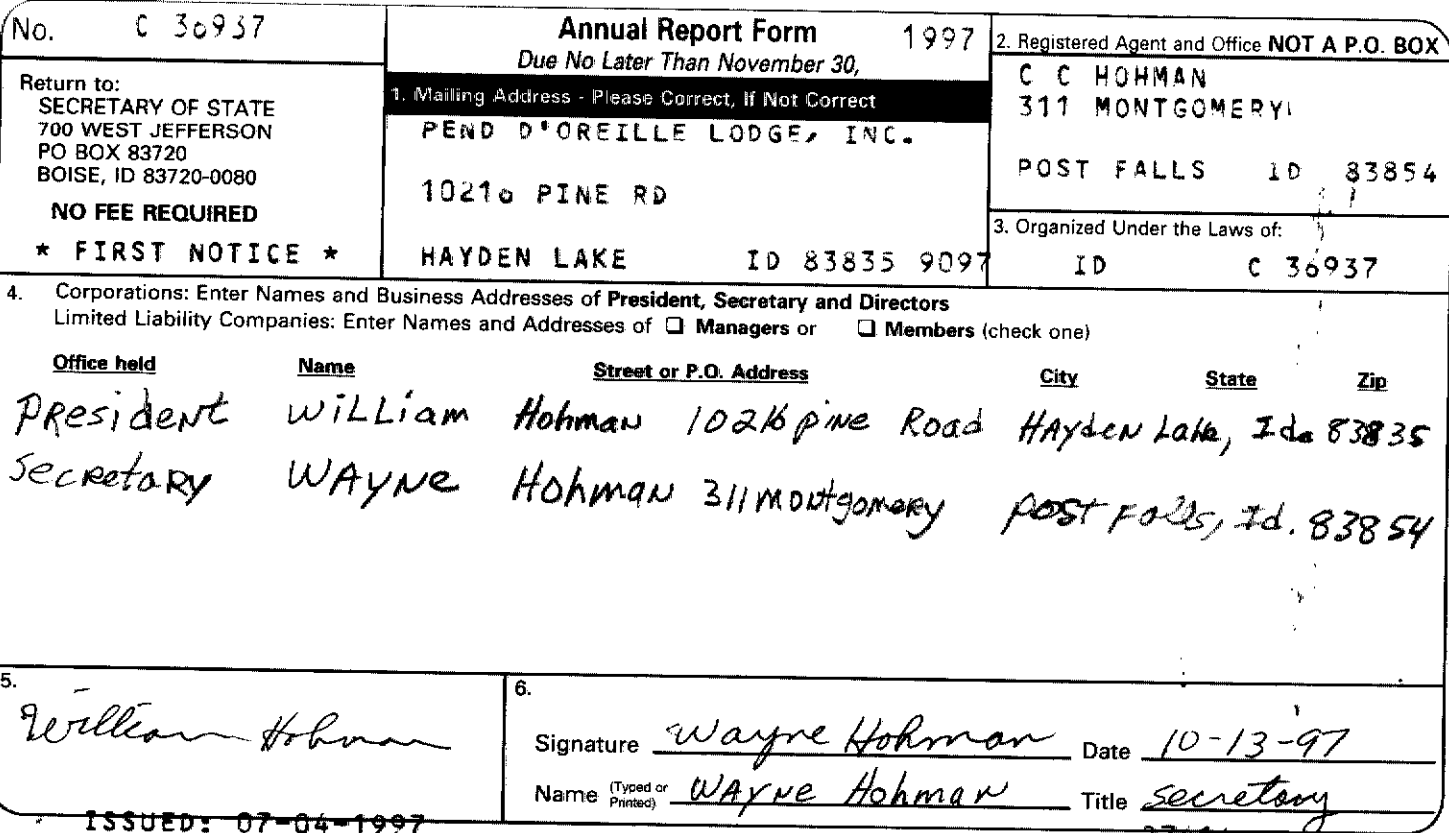 No. C 36937
Annual Report Form 1997
Due No Later Than November 30,
Return to:
SECRETARY OF STATE
700 WEST JEFFERSON
PO BOX 83720
BOISE, ID 83720-0080
NO FEE REQUIRED
* FIRST NOTICE *
1. Mailing Address - Please Correct, If Not Correct
PEND D'OREILLE LODGE, INC.
10216 PINE RD
HAYDEN LAKE ID 83835 9097
2. Registered Agent and Office NOT A P.O. BOX
C C HOHMAN
311 MONTGOMERY
POST FALLS ID 83854
3. Organized Under the Laws of:
ID C 36937
4. Corporations: Enter Names and Business Addresses of President, Secretary and Directors
Limited Liability Companies: Enter Names and Addresses of ❑ Managers or ❑ Members (check one)
Office held Name Street or P.O. Address City State Zip
President William Hohman 10216 pine Road Hayden Lake, Ida 83835
Secretary Wayne Hohman 311 Montgomery post Falls, Id. 83854
5. William Hohman
6.
Signature Wayne Hohman Date 10-13-97
Name (Typed or Printed) Wayne Hohman Title Secretary
ISSUED: 07-04-1997